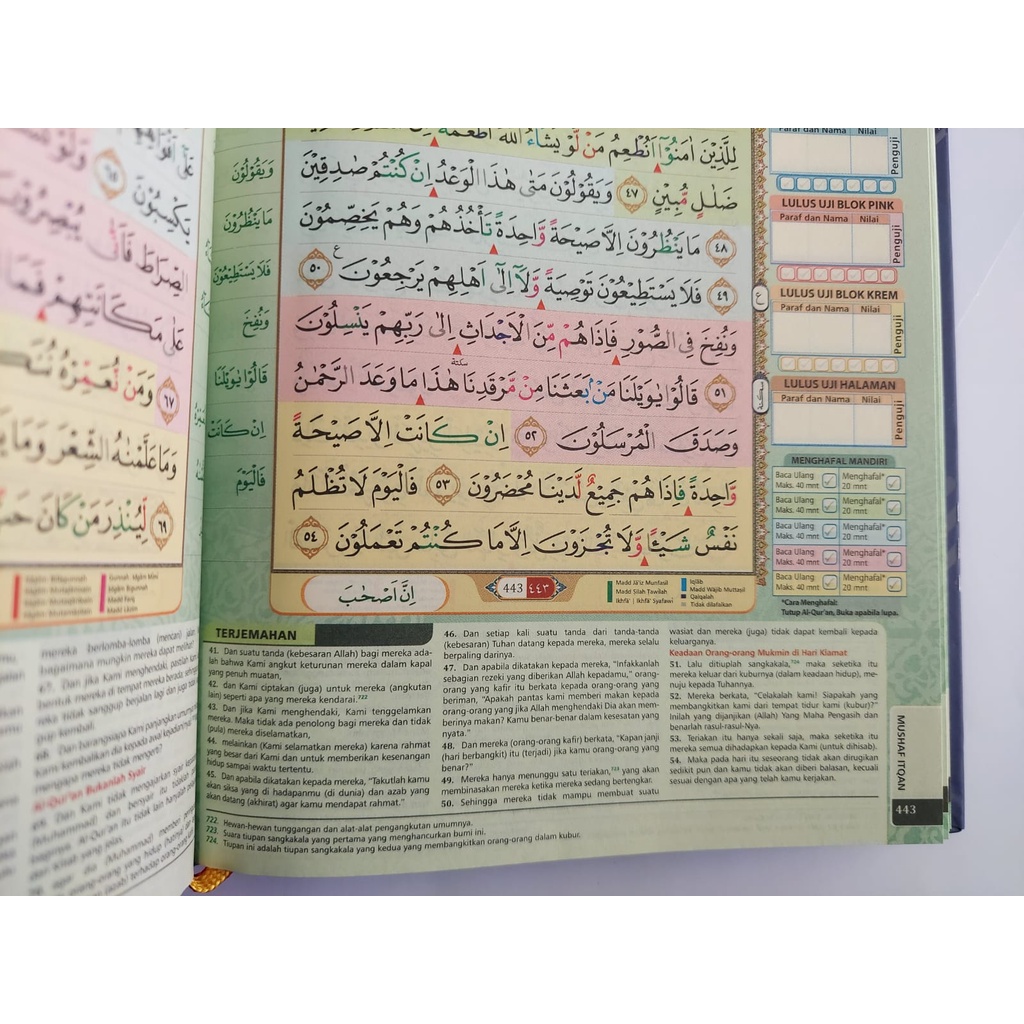 لِلَّذِيْنَ اٰمَنُوْٓا اَنُطْعِمُ مَنْ لَّوْ يَشَاۤءُ اللّٰهُ اَطْعَمَهٗٓ
ضَلٰلٍ مُّبِيْنٍ ٤٧ وَيَقُوْلُوْنَ مَتٰى هٰذَا الْوَعْدُ اِنْ كُنْتُمْ صٰدِقِيْنَ
٤٨ مَا يَنْظُرُوْنَ اِلَّا صَيْحَةً وَّاحِدَةً تَأْخُذُهُمْ وَهُمْ يَخِصِّمُوْنَ
٤٩ فَلَا يَسْتَطِيْعُوْنَ تَوْصِيَةً وَّلَآ اِلٰٓى اَهْلِهِمْ يَرْجِعُوْنَ ٥٠ ع
وَنُفِخَ فِى الصُّوْرِ فَاِذَا هُمْ مِّنَ الْاَجْدَاثِ اِلٰى رَبِّهِمْ يَنْسِلُوْنَ
٥١ قَالُوْا يٰوَيْلَنَا مَنْۢ بَعَثَنَا مِنْ مَّرْقَدِنَا سكتة هٰذَا مَا وَعَدَ الرَّحْمٰنُ
وَصَدَقَ الْمُرْسَلُوْنَ ٥٢ اِنْ كَانَتْ اِلَّا صَيْحَةً
وَّاحِدَةً فَاِذَا هُمْ جَمِيْعٌ لَّدَيْنَا مُحْضَرُوْنَ ٥٣ فَالْيَوْمَ لَا تُظْلَمُ
نَفْسٌ شَيْـًٔا وَّلَا تُجْزَوْنَ اِلَّا مَا كُنْتُمْ تَعْمَلُوْنَ ٥٤
وَيَقُوْلُوْنَ
مَا يَنْظُرُوْنَ
فَلَا يَسْتَطِيْعُوْنَ
وَنُفِخَ
قَالُوْا يٰوَيْلَنَا
اِنْ كَانَتْ
فَالْيَوْمَ
اِنَّ اَصْحٰبَ
443 ٤٤٣
Madd Jā'iz Munfasil
Madd Silah Tawilah
Ikhfā' | Ikhfā' Syafawi
Iqlāb
Madd Wājib Muttasil
Qalqalah
Tidak dilafalkan
يَكْسِبُوْنَ ٦٥
الصِّرَاطَ فَاَنّٰى يُبْصِرُوْنَ
عَلٰى مَكَانَتِهِمْ فَمَا
٦٧ وَمَنْ نُّعَمِّرْهُ
وَمَا عَلَّمْنٰهُ الشِّعْرَ وَمَا
٦٩ لِّيُنْذِرَ مَنْ كَانَ
Paraf dan Nama Nilai
Penguji
LULUS UJI BLOK PINK
Paraf dan Nama Nilai
Penguji
LULUS UJI BLOK KREM
Paraf dan Nama Nilai
Penguji
LULUS UJI HALAMAN
Paraf dan Nama Nilai
Penguji
ع
سكتة
MENGHAFAL MANDIRI
Baca Ulang Menghafal*
Maks. 40 mnt 20 mnt
Baca Ulang Menghafal*
Maks. 40 mnt 20 mnt
Baca Ulang Menghafal*
Maks. 40 mnt 20 mnt
Baca Ulang Menghafal*
Maks. 40 mnt 20 mnt
Baca Ulang Menghafal*
Maks. 40 mnt 20 mnt
*Cara Menghafal:
Tutup Al-Qur'an, Buka apabila lupa.
TERJEMAHAN
41. Dan suatu tanda (kebesaran Allah) bagi mereka ada-
lah bahwa Kami angkut keturunan mereka dalam kapal
yang penuh muatan,
42. dan Kami ciptakan (juga) untuk mereka (angkutan
lain) seperti apa yang mereka kendarai.722
43. Dan jika Kami menghendaki, Kami tenggelamkan
mereka. Maka tidak ada penolong bagi mereka dan tidak
(pula) mereka diselamatkan,
44. melainkan (Kami selamatkan mereka) karena rahmat
yang besar dari Kami dan untuk memberikan kesenangan
hidup sampai waktu tertentu.
45. Dan apabila dikatakan kepada mereka, "Takutlah kamu
akan siksa yang di hadapanmu (di dunia) dan azab yang
akan datang (akhirat) agar kamu mendapat rahmat."
46. Dan setiap kali suatu tanda dari tanda-tanda
(kebesaran) Tuhan datang kepada mereka, mereka selalu
berpaling darinya.
47. Dan apabila dikatakan kepada mereka, "Infakkanlah
sebagian rezeki yang diberikan Allah kepadamu," orang-
orang yang kafir itu berkata kepada orang-orang yang
beriman, "Apakah pantas kami memberi makan kepada
orang-orang yang jika Allah menghendaki Dia akan mem-
berinya makan? Kamu benar-benar dalam kesesatan yang
nyata."
48. Dan mereka (orang-orang kafir) berkata, "Kapan janji
(hari berbangkit) itu (terjadi) jika kamu orang-orang yang
benar?"
49. Mereka hanya menunggu satu teriakan,723 yang akan
membinasakan mereka ketika mereka sedang bertengkar.
50. Sehingga mereka tidak mampu membuat suatu
wasiat dan mereka (juga) tidak dapat kembali kepada
keluarganya.
Keadaan Orang-orang Mukmin di Hari Kiamat
51. Lalu ditiuplah sangkakala,724 maka seketika itu
mereka keluar dari kuburnya (dalam keadaan hidup), me-
nuju kepada Tuhannya.
52. Mereka berkata, "Celakalah kami! Siapakah yang
membangkitkan kami dari tempat tidur kami (kubur)?"
Inilah yang dijanjikan (Allah) Yang Maha Pengasih dan
benarlah rasul-rasul-Nya.
53. Teriakan itu hanya sekali saja, maka seketika itu
mereka semua dihadapkan kepada Kami (untuk dihisab).
54. Maka pada hari itu seseorang tidak akan dirugikan
sedikit pun dan kamu tidak akan diberi balasan, kecuali
sesuai dengan apa yang telah kamu kerjakan.
722. Hewan-hewan tunggangan dan alat-alat pengangkutan umumnya.
723. Suara tiupan sangkakala yang pertama yang menghancurkan bumi ini.
724. Tiupan ini adalah tiupan sangkakala yang kedua yang membangkitkan orang-orang dalam kubur.
MUSHAF ITQAN
443
mereka berlomba-lomba (mencari) jalan
bagaimana mungkin mereka dapat melihat?
67. Dan jika Kami menghendaki, pastilah Kami
Al-Qur'an Bukanlah Syair